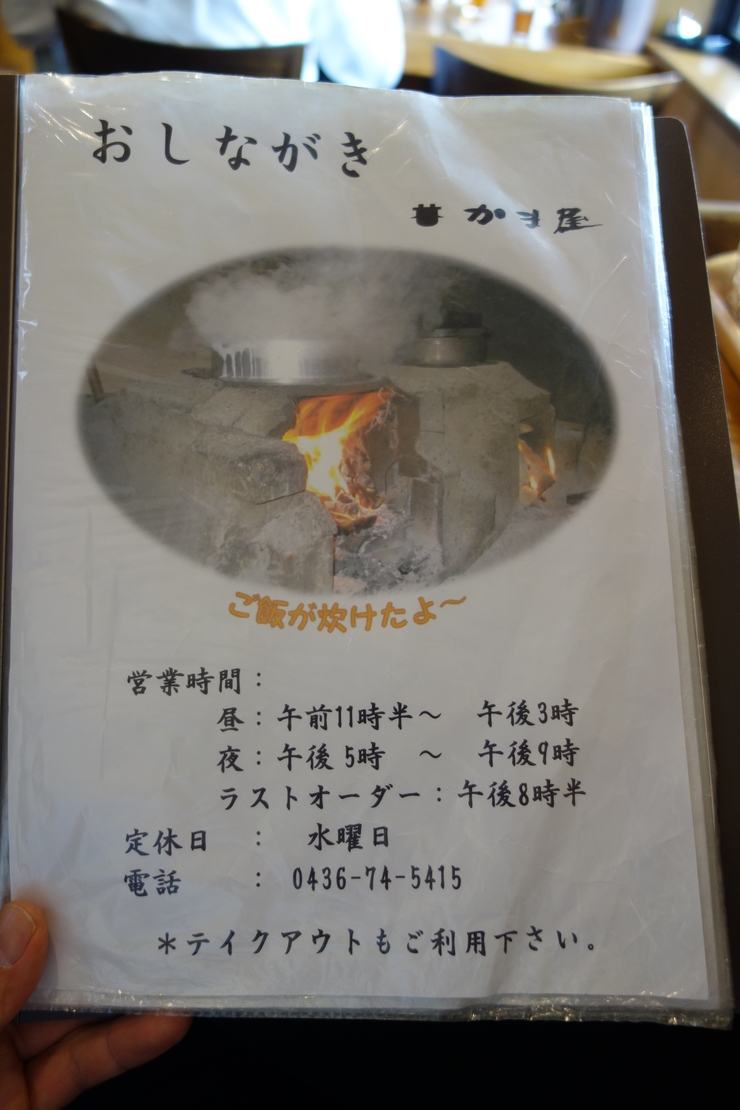 おしながき
かま屋
ご飯が炊けたよ～
営業時間：
昼：午前11時半～　午後3時
夜：午後5時　～　午後9時
ラストオーダー：午後8時半
定休日　：　水曜日
電話　　：　0436-74-5415
＊テイクアウトもご利用下さい。